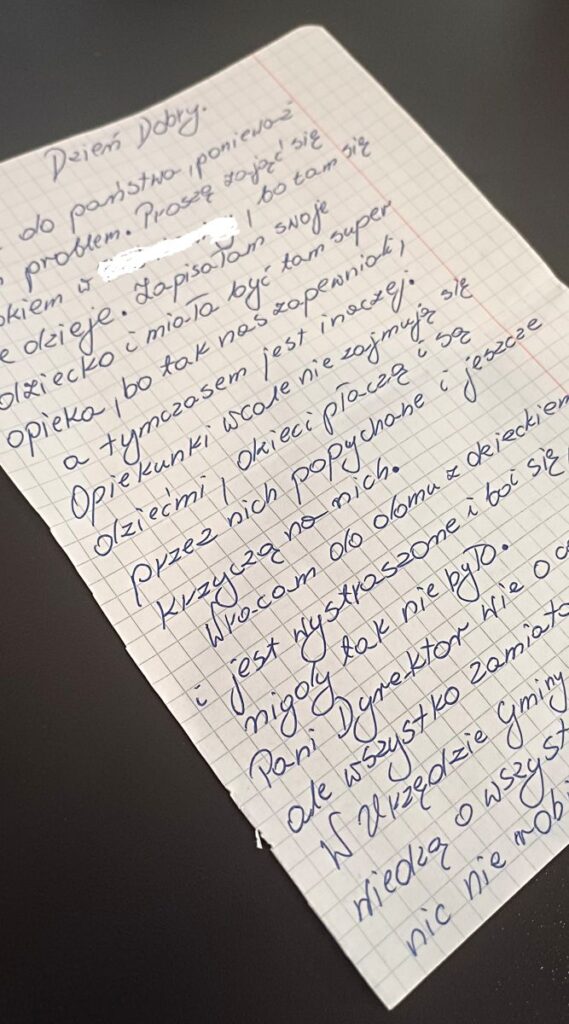 Dzień Dobry.
do państwa, ponieważ
problem. Proszę zająć się
w , bo tam się
dzieje. Zapisałam swoje
dziecko i miała być tam super
opieka, bo tak nas zapewniali,
a tymczasem jest inaczej.
Opiekunki wcale nie zajmują się
dziećmi, dzieci płaczą i są
przez nich popychane i jeszcze
krzyczą na nich.
Wracam do domu z dzieckiem
i jest wystraszone i boi się,
nigdy tak nie było.
Pani Dyrektor wie o
ale wszystko zamiata
W Urzędzie Gminy
wiedzą o wszyst
nic nie robi